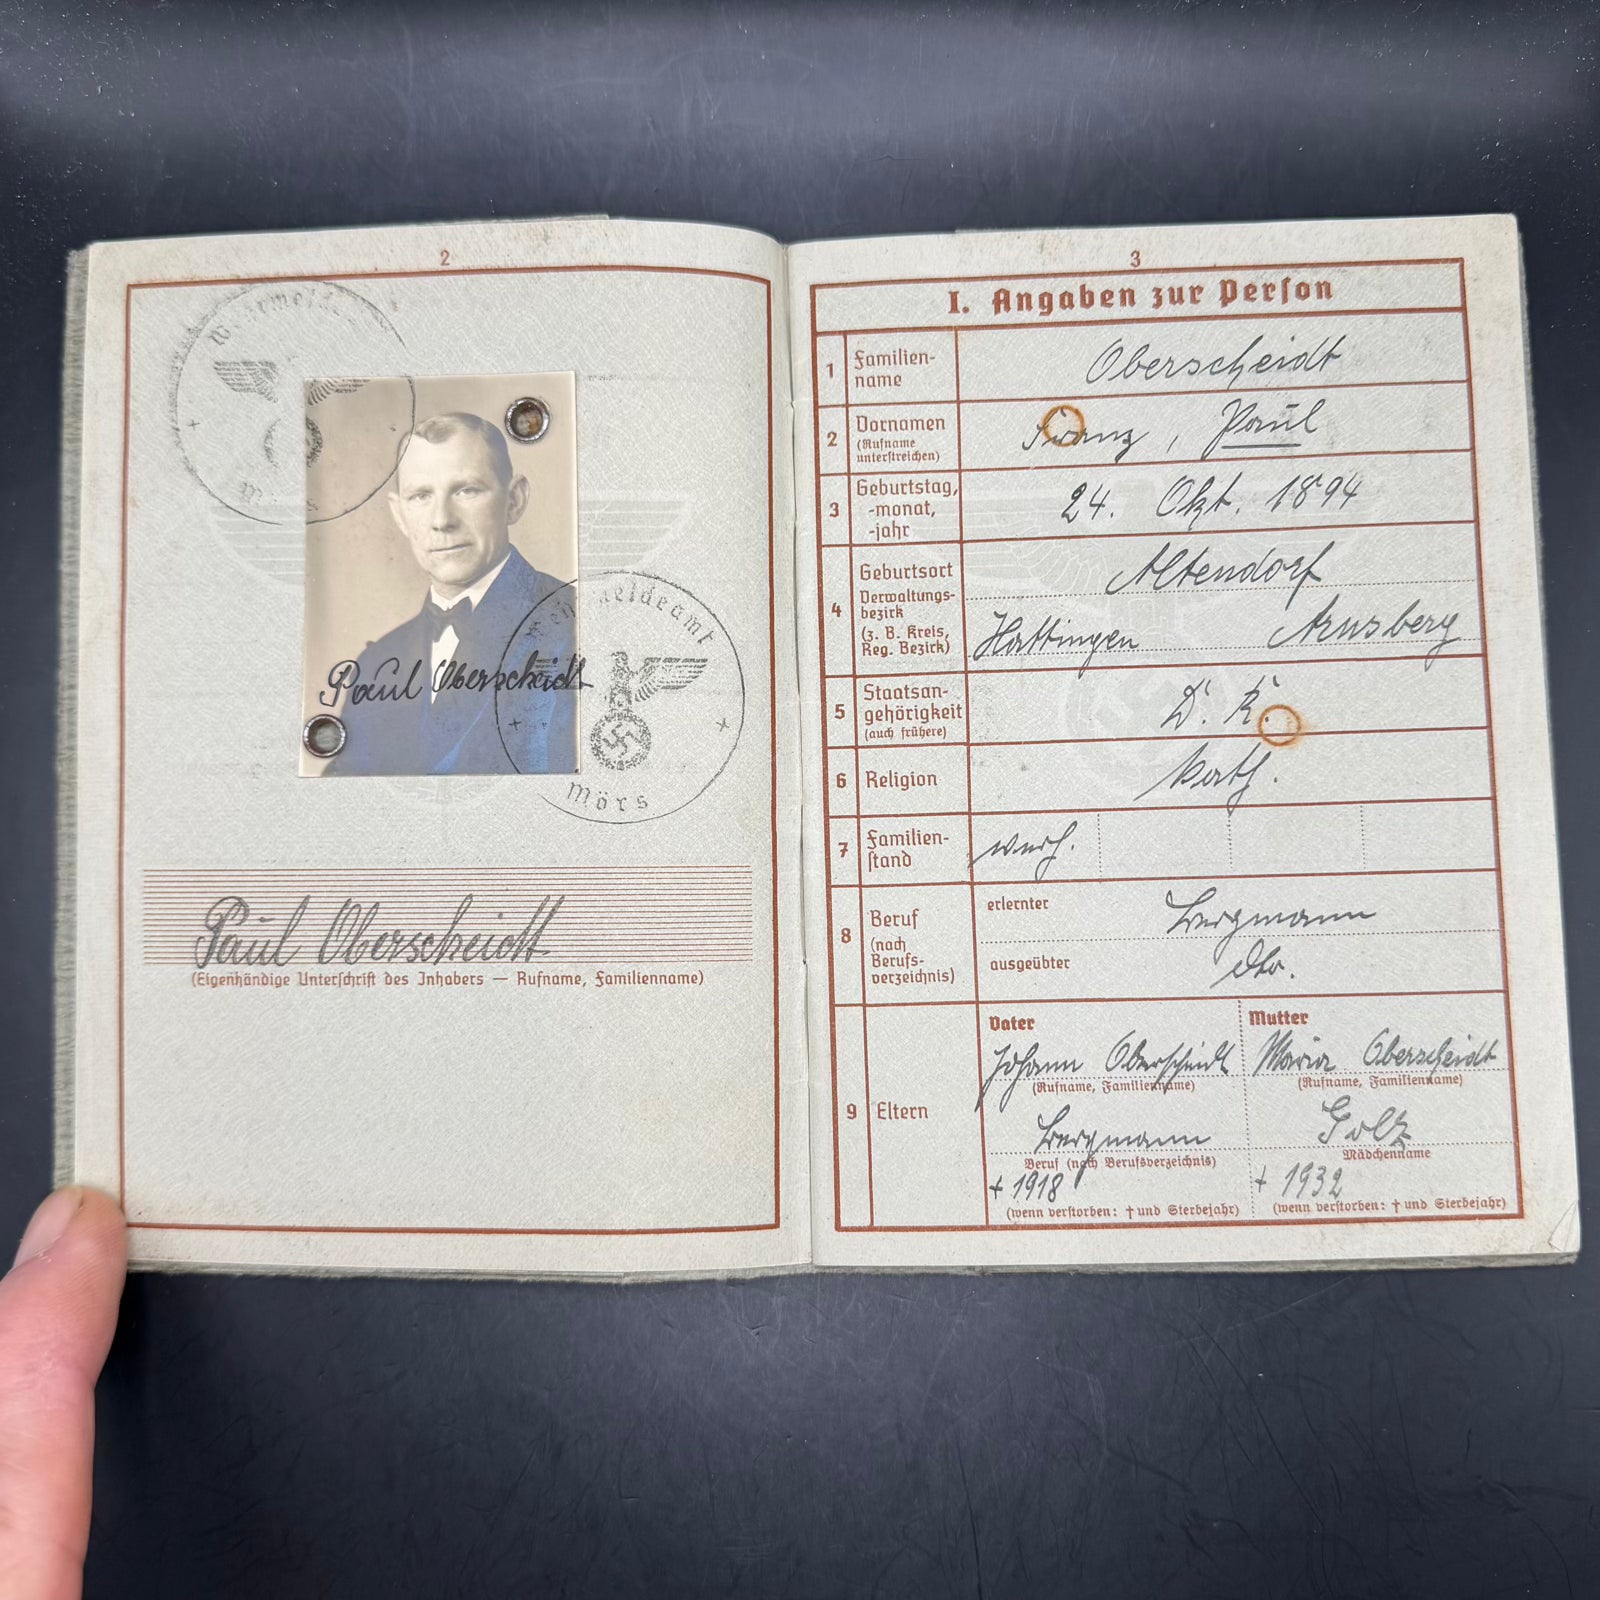 2
Wehrmeldeamt
Mörs
Paul Oberscheidt
Wehrmeldeamt
Mörs
Paul Oberscheidt
(Eigenhändige Unterschrift des Inhabers — Rufname, Familienname)
3
I. Angaben zur Person
1 Familien-
name
Oberscheidt
2 Vornamen
(Rufname
unterstreichen)
Franz, Paul
3 Geburtstag,
-monat,
-jahr
24. Okt. 1894
4 Geburtsort
Verwaltungs-
bezirk
(z. B. Kreis,
Reg. Bezirk)
Altendorf
Hattingen Arnsberg
5 Staatsan-
gehörigkeit
(auch frühere)
D. R.
6 Religion
kath.
7 Familien-
stand
verh.
8 Beruf
(nach
Berufs-
verzeichnis)
erlernter
Bergmann
ausgeübter
dto.
9 Eltern
Vater
Johann Oberscheidt
(Rufname, Familienname)
Bergmann
Beruf (nach Berufsverzeichnis)
+ 1918
(wenn verstorben: † und Sterbejahr)
Mutter
Maria Oberscheidt
(Rufname, Familienname)
Golz
Mädchenname
+ 1932
(wenn verstorben: † und Sterbejahr)